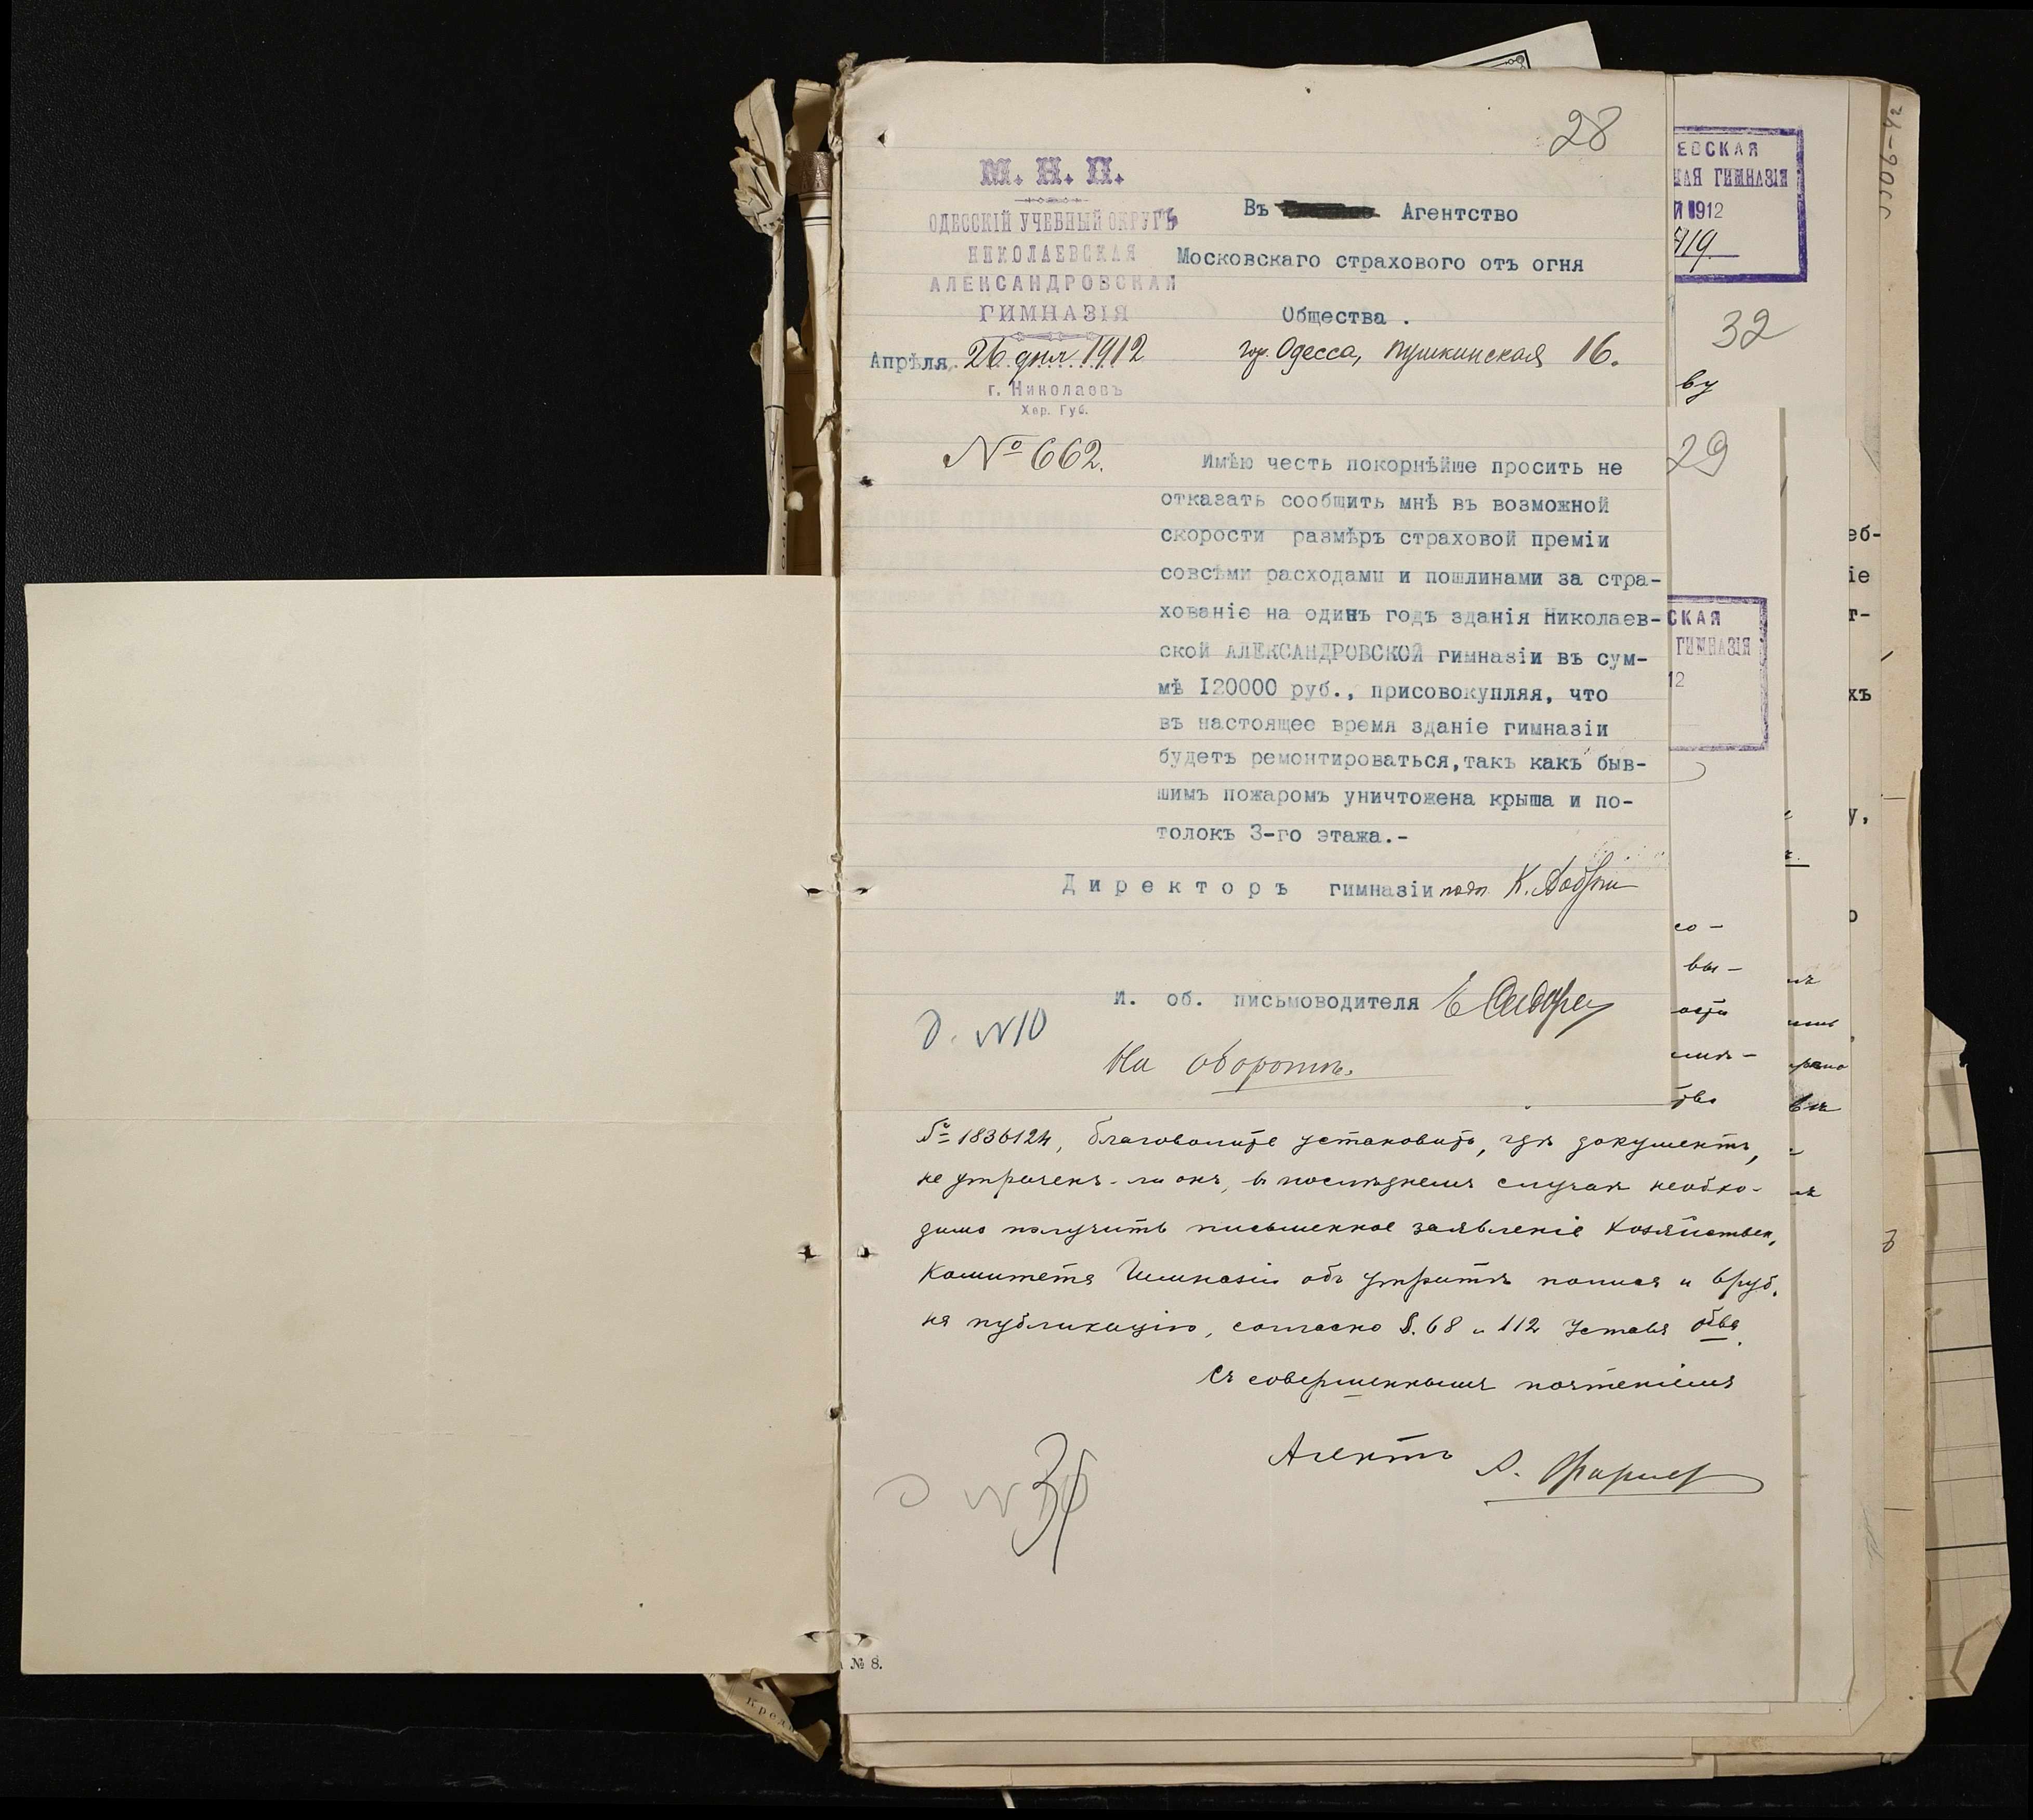 28
М. Н. П.
ОДЕССКІЙ УЧЕБНЫЙ ОКРУГЪ
НИКОЛАЕВСКАЯ
АЛЕКСАНДРОВСКАЯ
ГИМНАЗІЯ
Апрѣля 26 дня 1912
г. Николаевъ
Хер. Губ.
№ 662.
Въ Агентство
Московскаго страхового отъ огня
Общества .
гор. Одесса, Пушкинская 16.
Имѣю честь покорнѣйше просить не
отказать сообшить мнѣ въ возможной
скорости размѣръ страховой преміи
совсѣми расходами и пошлинами за стра-
хованіе на одинъ годъ зданія Николаев-
ской АЛЕКСАНДРОВСКОЙ гимназіи въ сум-
мѣ I20000 руб., присовокупляя, что
въ настоящее время зданіе гимназіи
будетъ ремонтироваться,такъ какъ быв-
шимъ пожаромъ уничтожена крыша и по-
толокъ 3-го этажа.-
Директоръ гимназіи подп. К.
И. об. письмоводителя
д. №10
На оборотѣ.
№ 1836124, благоволите установить, гдѣ документъ,
не утраченъ-ли онъ, въ послѣднемъ случаѣ необхо-
димо получить письменное заявленіе Хозяйствен.
Комитета Гимназіи объ утратѣ полиса и 6 руб.
на публикацію, согласно §. 68 и 112 Устава Обва.
Съ совершеннымъ почтеніемъ
Агентъ
№ 8.
ЕВСКАЯ
НАЯ ГИМНАЗІЯ
Й 1912
919
32
ву
29
СКАЯ
ГИМНАЗІЯ
12
со-
вы-
еб-
іе
т-
хъ
у,
о